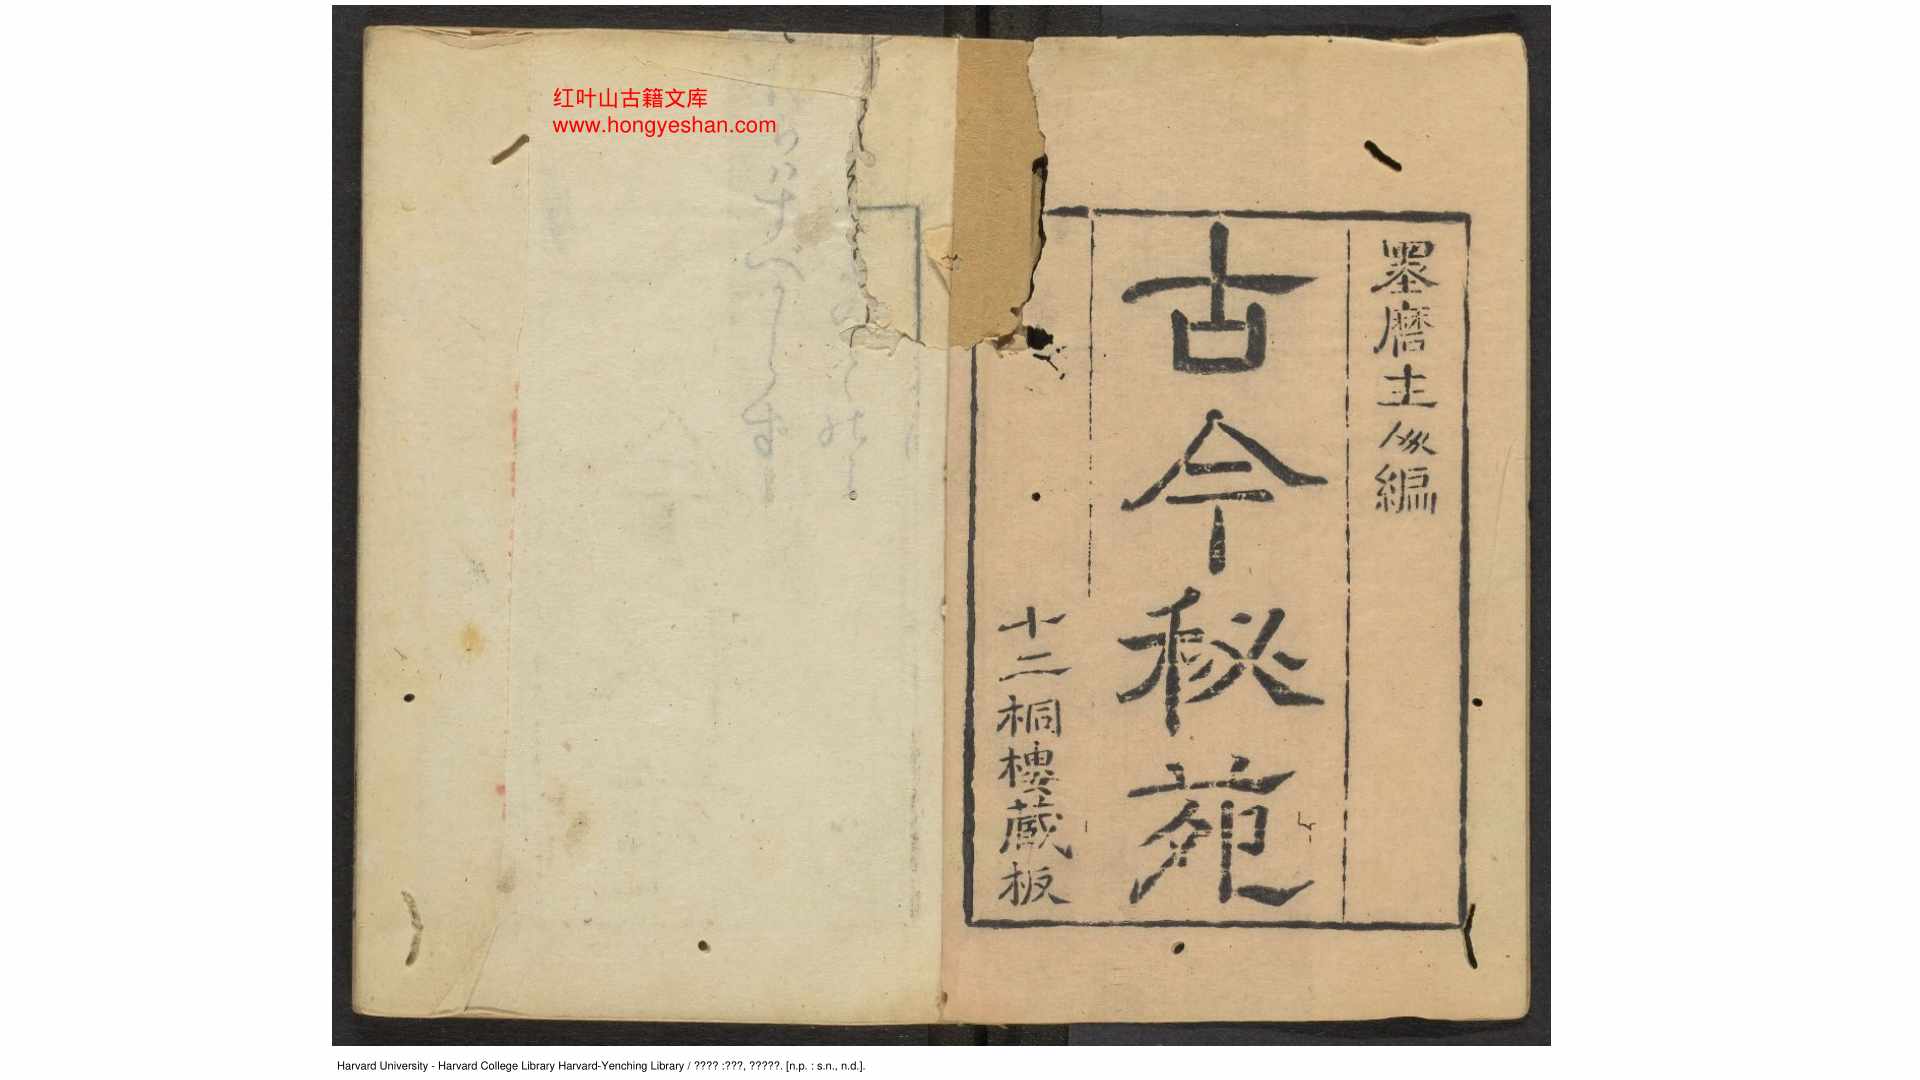 红叶山古籍文库
www.hongyeshan.com
墨磨主人編
古今秘苑
十二桐樓蔵板
Harvard University - Harvard College Library Harvard-Yenching Library / ???? :???, ?????. [n.p. : s.n., n.d.].